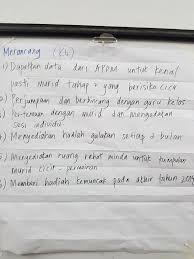 Merancang (K4)
1) Dapatkan data dari APDM untuk kenal
pasti murid tahap 2 yang berisiko cicir
2) Perjumpaan dan berbincang dengan guru kelas
3) Pertemuan dengan murid dan mengadakan
sesi individu
4) Menyediakan hadiah galakan setiap 2 bulan
5) Menyediakan ruang rehat minda untuk kumpulan
murid cicir - permainan
6) Memberi hadiah kemuncak pada akhir tahun